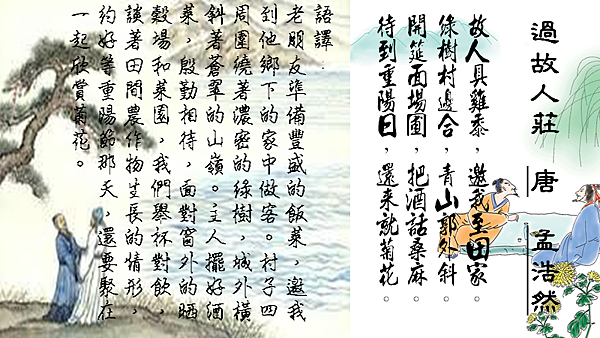 過故人莊 唐 孟浩然
故人具雞黍，邀我至田家。
綠樹村邊合，青山郭外斜。
開筵面場圃，把酒話桑麻。
待到重陽日，還來就菊花。
語譯：
老朋友準備豐盛的飯菜，邀我
到他鄉下的家中做客。村子四
周圍繞著濃密的綠樹，城外橫
斜著蒼翠的山嶺。主人擺好酒
菜，殷勤相待，面對窗外的晒
穀場和菜園，我們舉杯對飲，
談著田間農作物生長的情形，
約好等重陽節那天，還要聚在
一起欣賞菊花。